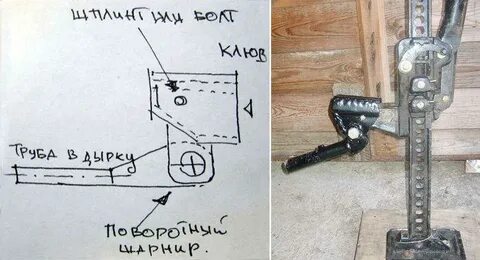 ШПЛИНТ ИЛИ БОЛТ
КЛЮВ
ТРУБА В ДЫРКУ
ПОВОРОТНЫЙ
ШАРНИР.